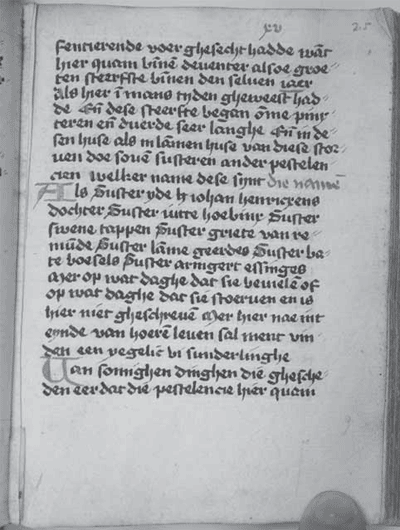 xv 25
sentierende voer ghesecht hadde wāt
hier quam bīnē deventer alsoe groe
ten steerffte bīnen den selven iaer
als hier ī mans tyden gheweest had
de Eñ dese steerfte began ōme pinx
teren eñ duerde seer langhe Eñ in de
sen huse als in lāmen huse van diese stor
uen doe souē susteren ander pestelen
cien welker name dese synt die namē
Als Suster yde h iohan henricxens
dochter Suster iutte hoebinx Suster
swene tappen Suster griete van re
mūde Suster lāme geerdes Suster ba
te boesels Suster armgert essinges
Mer op wat daghe dat sie bevielē of
op wat daghe dat sie stoerven en is
hier niet ghescreuē Mer hier nae int
eynde van hoerē leven sal ment vin
den een yegelic bi sunderlinghe
Uan sommighen dinghen die ghesche
den eer dat die pestelencie hier quam